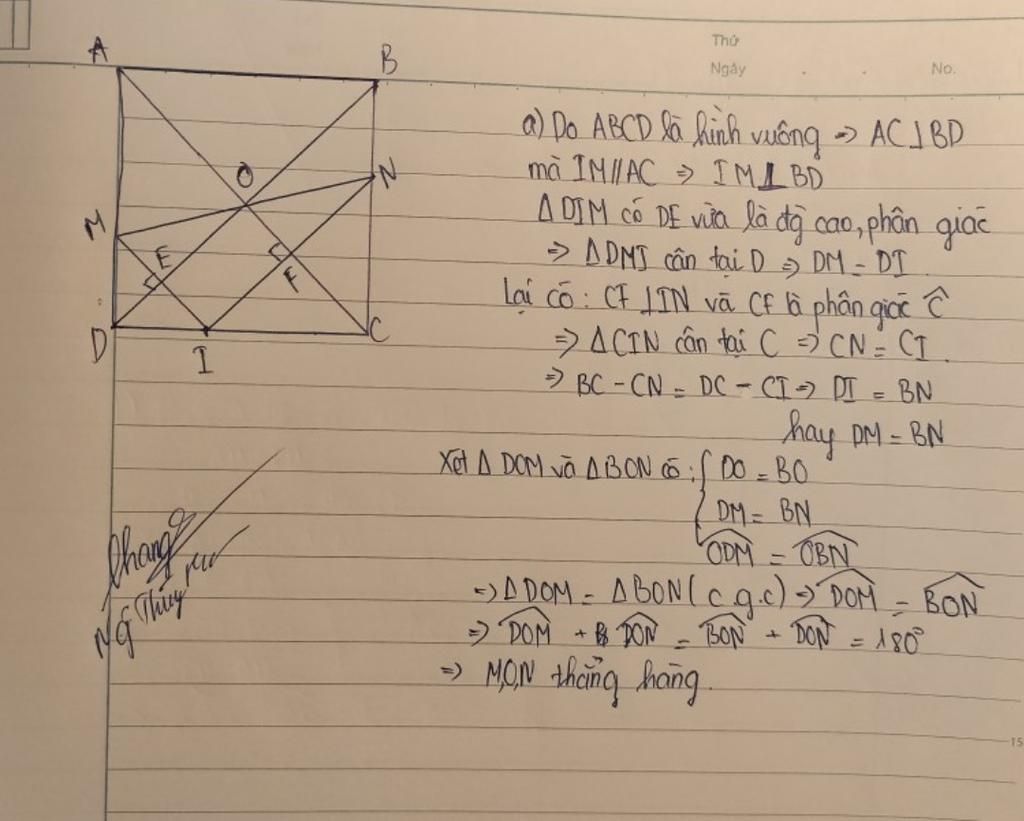 Thứ
Ngày . . No.
A
B
O
N
M
E
F
D
I
C
a) Do ABCD là hình vuông => AC⊥BD
mà IM//AC => IM⊥BD
Δ DIM có DE vừa là đg cao, phân giác
=> ΔDMI cân tại D => DM = DI
Lại có: CF⊥IN và CF là phân giác Ĉ
=> ΔCIN cân tại C => CN = CI.
=> BC - CN = DC - CI => DI = BN
hay DM = BN
Xét Δ DOM và ΔBON có: { DO = BO
DM = BN
\widehat{ODM} = \widehat{OBN}
=> Δ DOM = ΔBON (c.g.c) => \widehat{DOM} = \widehat{BON}
=> \widehat{DOM} + \widehat{DON} = \widehat{BON} + \widehat{DON} = 180°
=> M,O,N thẳng hàng.
NG Thúy
15